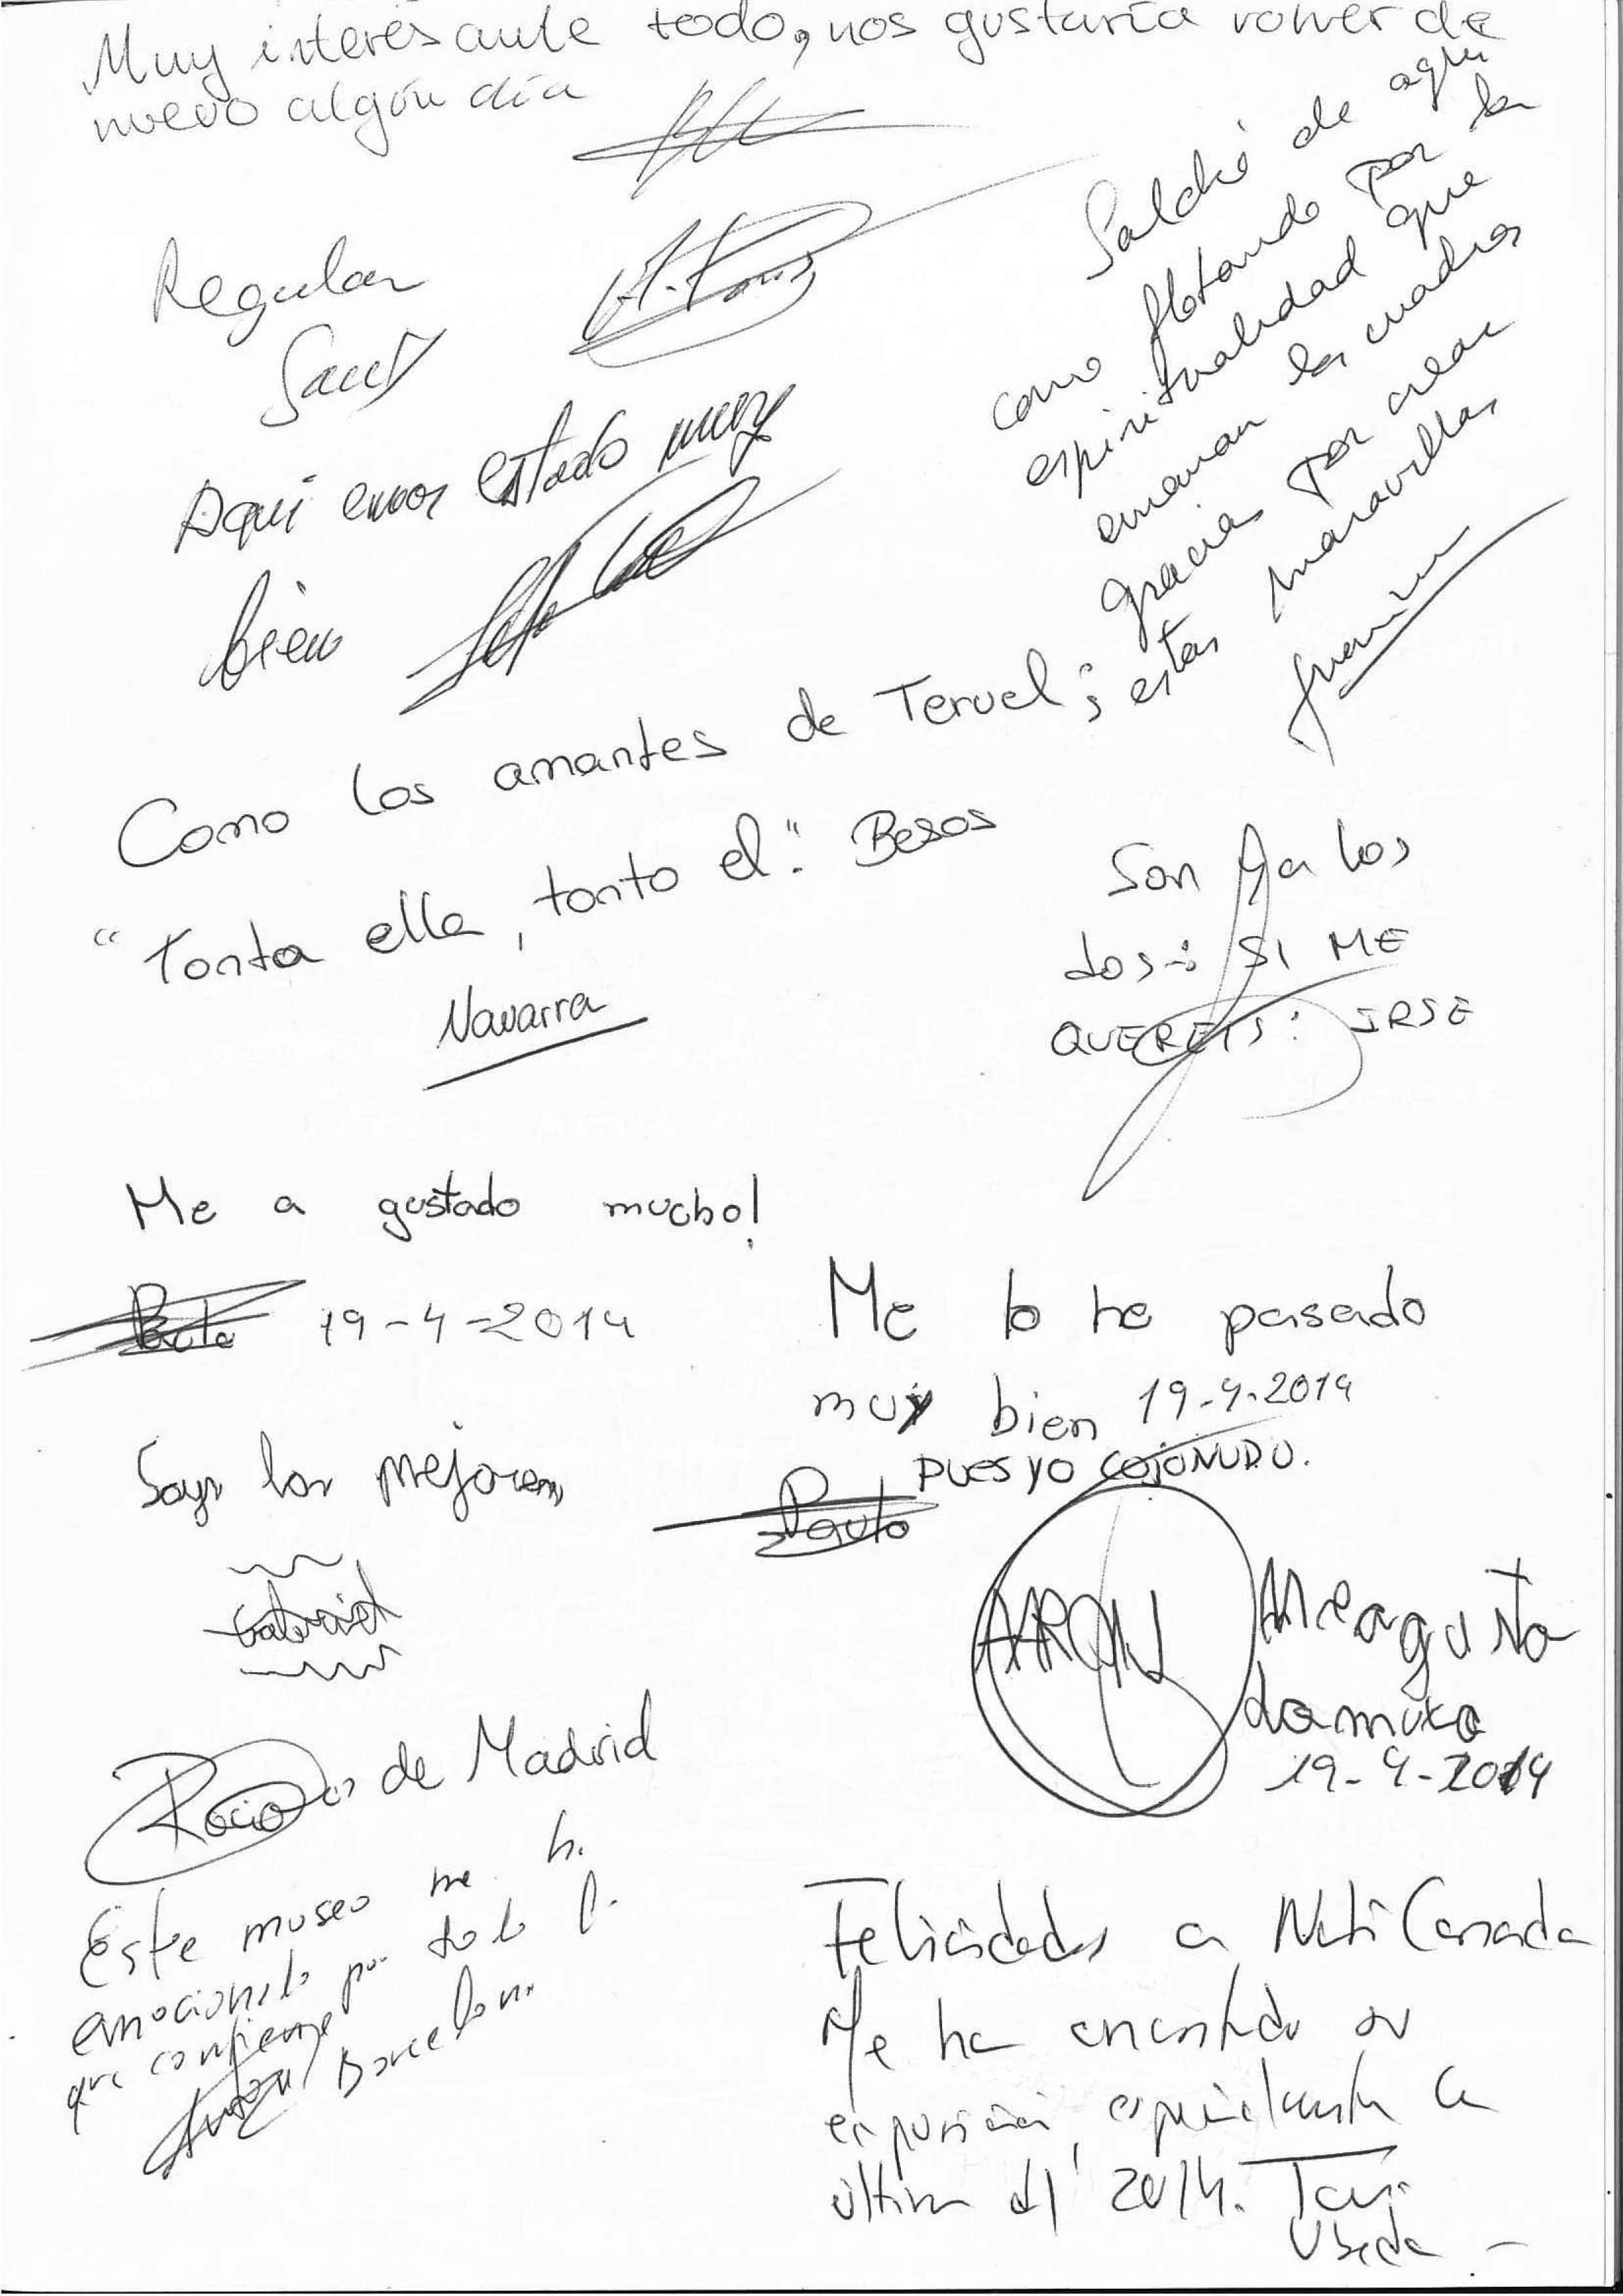 Muy interesante todo, nos gustaría volver de
nuevo algún día
Saldré de aquí
como flotando por la
espiritualidad que
emanan los cuadros
gracias por crear
estas maravillas
Regular
Aquí emos estado muy
bien
Como los amantes de Teruel;
"Tonta ella, tonto el." Besos
Navarra
Son ya los
dos: SI ME
QUEREIS: IRSE
Me a gustado mucho!
Paula 19-4-2014
Me lo he pasado
muy bien 19-4-2014
PUES YO COJONUDO.
Paula
Soys los mejores
Gabriel
AARON
Me a gustado
19-4-2014
Rocio de Madrid
Este museo me h.
emocionado por todo l.
que contiene
Barcelona
Felicidades a Nati Cañada
Me ha encantado su
exposición, especialmente la
última del 2014.
Ubeda